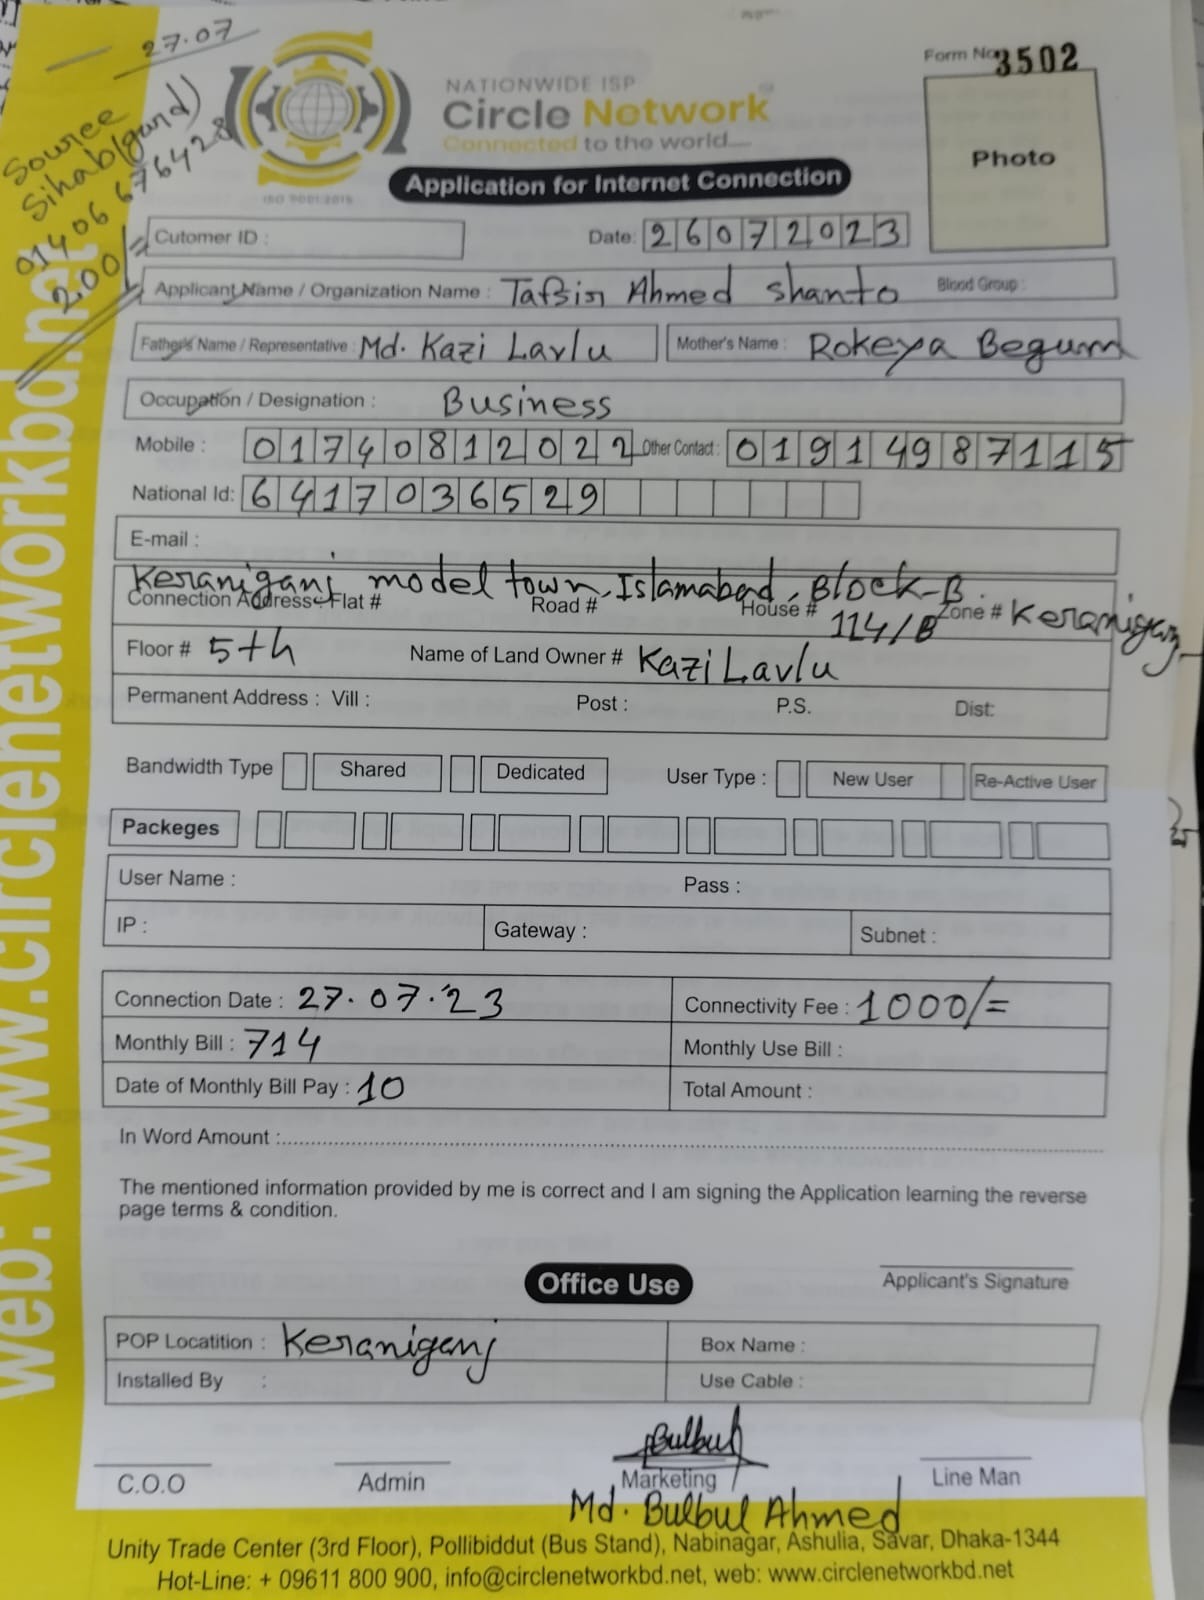 27.07
Source
Sihab(gard)
01406676428
200/=
NATIONWIDE ISP
Circle Network
Connected to the world
ISO 9001:2015
Form No. 3502
Photo
Application for Internet Connection
Cutomer ID :
Date: 26072023
Applicant Name / Organization Name : Tafsin Ahmed Shanto Blood Group :
Father's Name / Representative : Md. Kazi Lavlu Mother's Name : Rokeya Begum
Occupation / Designation : Business
Mobile : 01740812022 Other Contact : 01914987115
National Id: 6417036529
E-mail :
Keraniganj model town, Islamabad, Block-B.
Connection Address: Flat # Road # House # 114/B Zone # Keraniganj
Floor # 5th Name of Land Owner # Kazi Lavlu
Permanent Address : Vill : Post : P.S. Dist:
Bandwidth Type Shared Dedicated User Type : New User Re-Active User
Packeges
User Name : Pass :
IP : Gateway : Subnet :
Connection Date : 27.07.23 Connectivity Fee : 1000/=
Monthly Bill : 714 Monthly Use Bill :
Date of Monthly Bill Pay : 10 Total Amount :
In Word Amount :
The mentioned information provided by me is correct and I am signing the Application learning the reverse
page terms & condition.
Applicant's Signature
Office Use
POP Locatition : Keraniganj Box Name :
Installed By : Use Cable :
Bulbul
C.O.O Admin Marketing Line Man
Md. Bulbul Ahmed
Unity Trade Center (3rd Floor), Pollibiddut (Bus Stand), Nabinagar, Ashulia, Savar, Dhaka-1344
Hot-Line: + 09611 800 900, info@circlenetworkbd.net, web: www.circlenetworkbd.net
web: www.circlenetworkbd.net